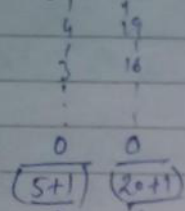 4 19
3 16
0 0
(5+1) (20+1)